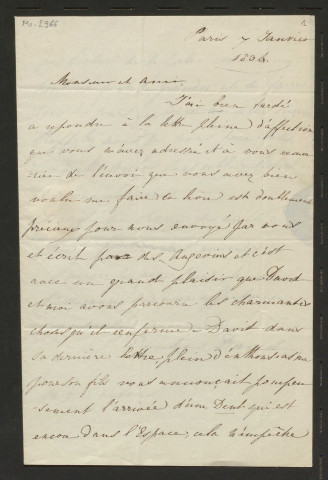 Ms-2966
1
Paris 7 Janvier
1834.
Monsieur et ami
J'ai bien tardé
a repondre à la lettre pleine d'affection
que vous m'avez adressée et à vous remer
-cier de l'envoi que vous avez bien
voulu me faire ce livre est doublement
précieux pour nous envoyé par vous
et écrit par des Angevins et c'est
avec un grand plaisir que David
et moi avons parcouru les charmantes
choses qu'il renferme. David dans
sa dernière lettre plein d'enthousiasme
pour son fils vous annonçait pompeu
-sement l'arrivée d'une Dent qui est
encore dans l'Espace, cela n'empêche